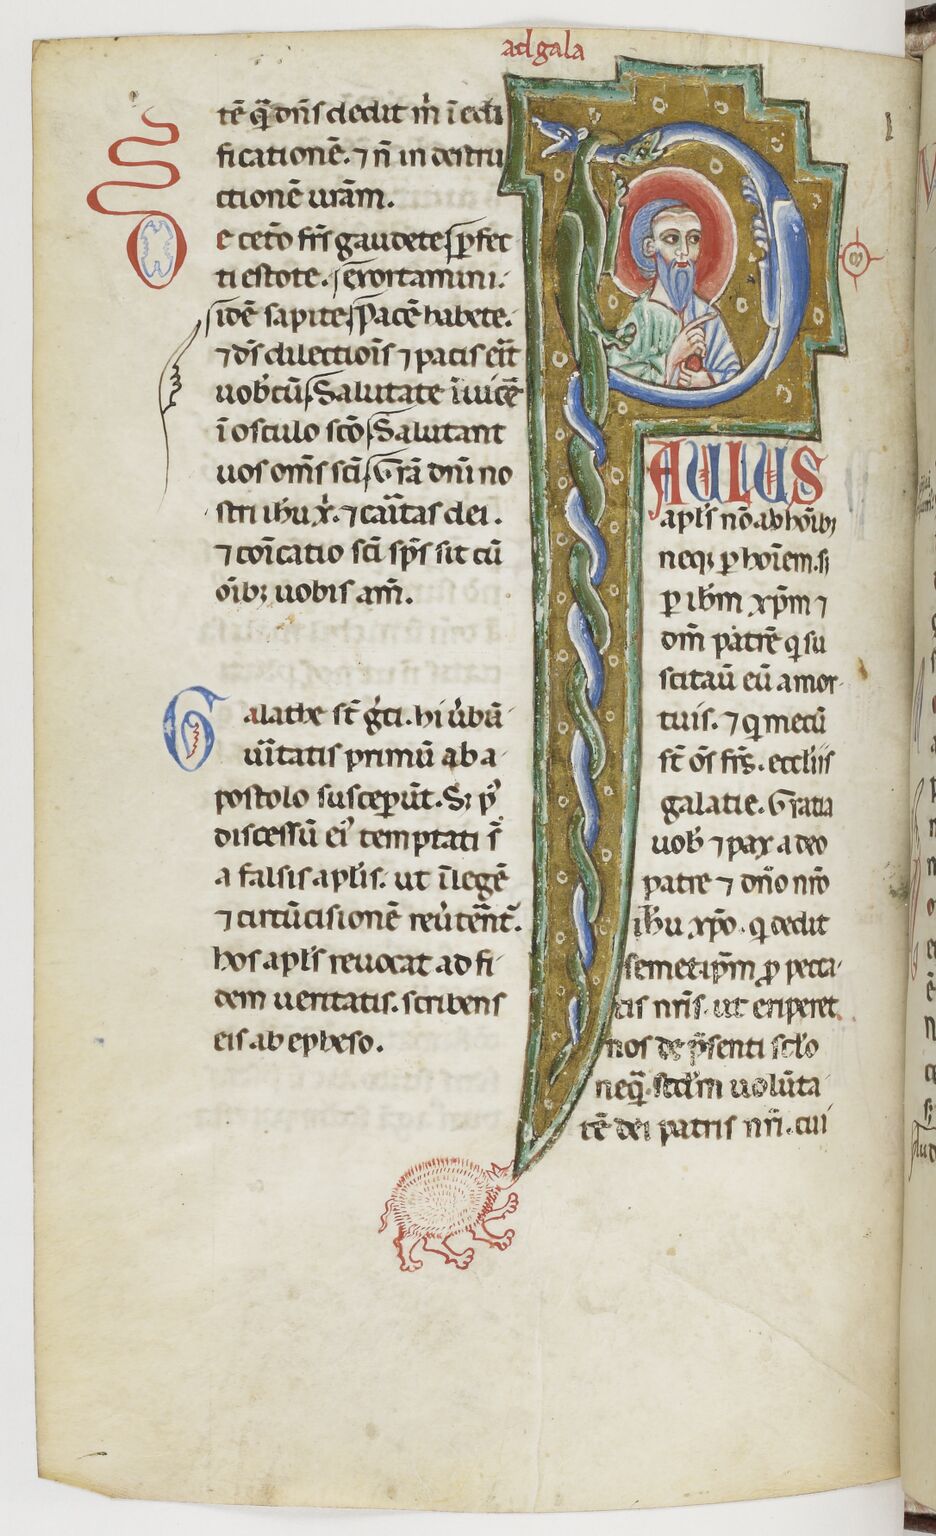 ad gala
tē q̄ dn̄s dedit m̄ ī edi
ficationē. ⁊ n̄ in destru
ctionē urām.
De ceto fr̄s gaudete, ꝑfec
ti estote. exortamini.
idē sapite, Pacē habete.
⁊ ds̄ dilectiōis ⁊ pacis erit
uob cū, Salutate īuicē
ī osculo sc̄o, Salutant
uos om̄s sc̄i, Gr̄a dn̄i no
stri ih̄u x̄. ⁊ cāitas dei.
⁊ cōicatio sc̄i sp̄s sit cū
oībꝫ uobis am̄.
Galathe st̄ g̓ci. hi u̓bū
uītatis primū ab a
postolo susceper̄t. S; p̓
discessū ei᾿ temptati s̄
a falsis apl̄is. ut ī legē
⁊ circūcisionē reu̓tēnt̄.
hos apl̄s reuocat ad fi
dem ueritatis. scribens
eis ab epheso.
PAULUS
apl̄s nō ab hōibꝫ
neqꝫ ꝑ hoīem. sꝫ
ꝑ ih̄m xp̄m ⁊
dm̄ patrē q̓ su
scitauͥ eū a mor
tuis. ⁊ q̓ mecū
st̄ oēs fr̄s. eccl̄iis
galatie. Gratia
uob ⁊ pax a deo
patre ⁊ dn̄o nr̄o
ih̄u xp̄o. q̓ dedit
semetip̄m ꝓ pecca
tis nr̄is. ut eriperet
nos de p̄senti scl̄o
neq̄. scd̄m uolūta
tē dei patris nr̄i. cui